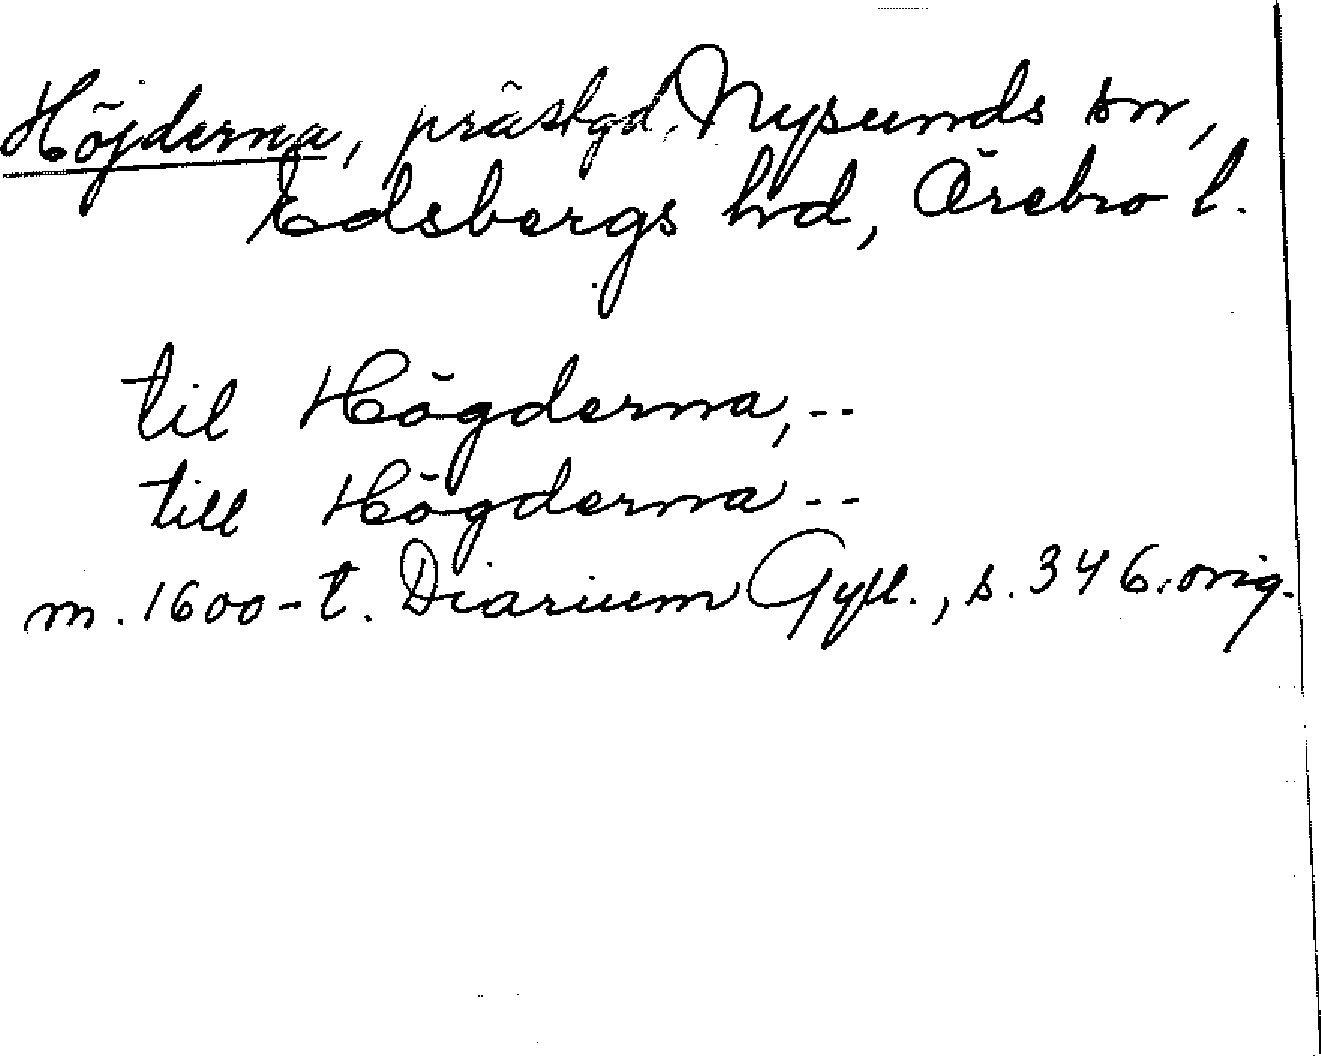 Höjderna, prästgd, Nysunds sn,
Edsbergs hd, Örebro l.
til Högderna,--
till Högderna--
m. 1600-t. Diarium Gyll., s. 346. orig.